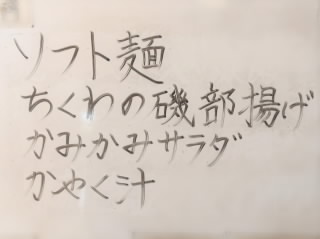 ソフト麺
ちくわの磯部揚げ
かみかみサラダ
かやく汁